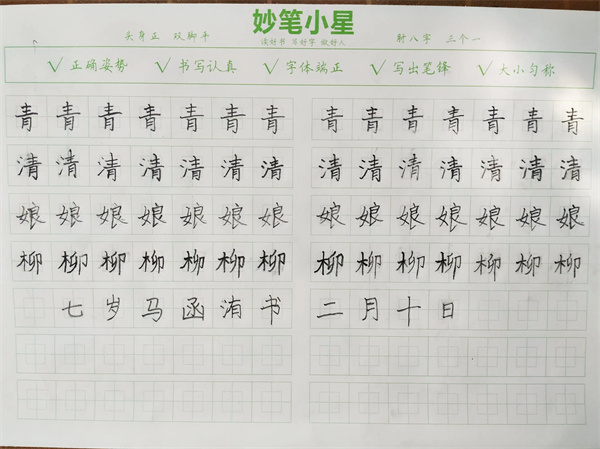 妙笔小星
头身正 双脚平
读好书 写好字 做好人
肘八字 三个一
√ 正确姿势 √ 书写认真 √ 字体端正 √ 写出笔锋 √ 大小匀称
青青青青青青青 青青青青青青青
清清清清清清清 清清清清清清清
娘娘娘娘娘娘娘 娘娘娘娘娘娘娘
柳柳柳柳柳柳柳 柳柳柳柳柳柳柳
七岁马函洧书 二月十日